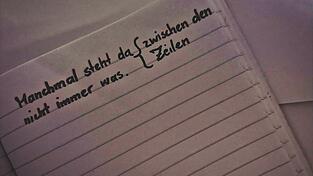 Manchmal steht da { zwischen den
nicht immer was. { Zeilen